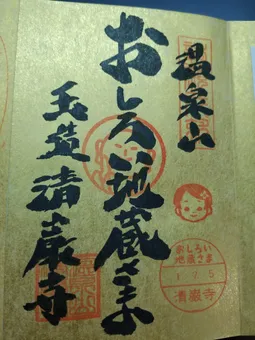 温泉山
おしろい地蔵さま
玉造 清巖寺
おしろい
地蔵さま
1.7.5
清巌寺